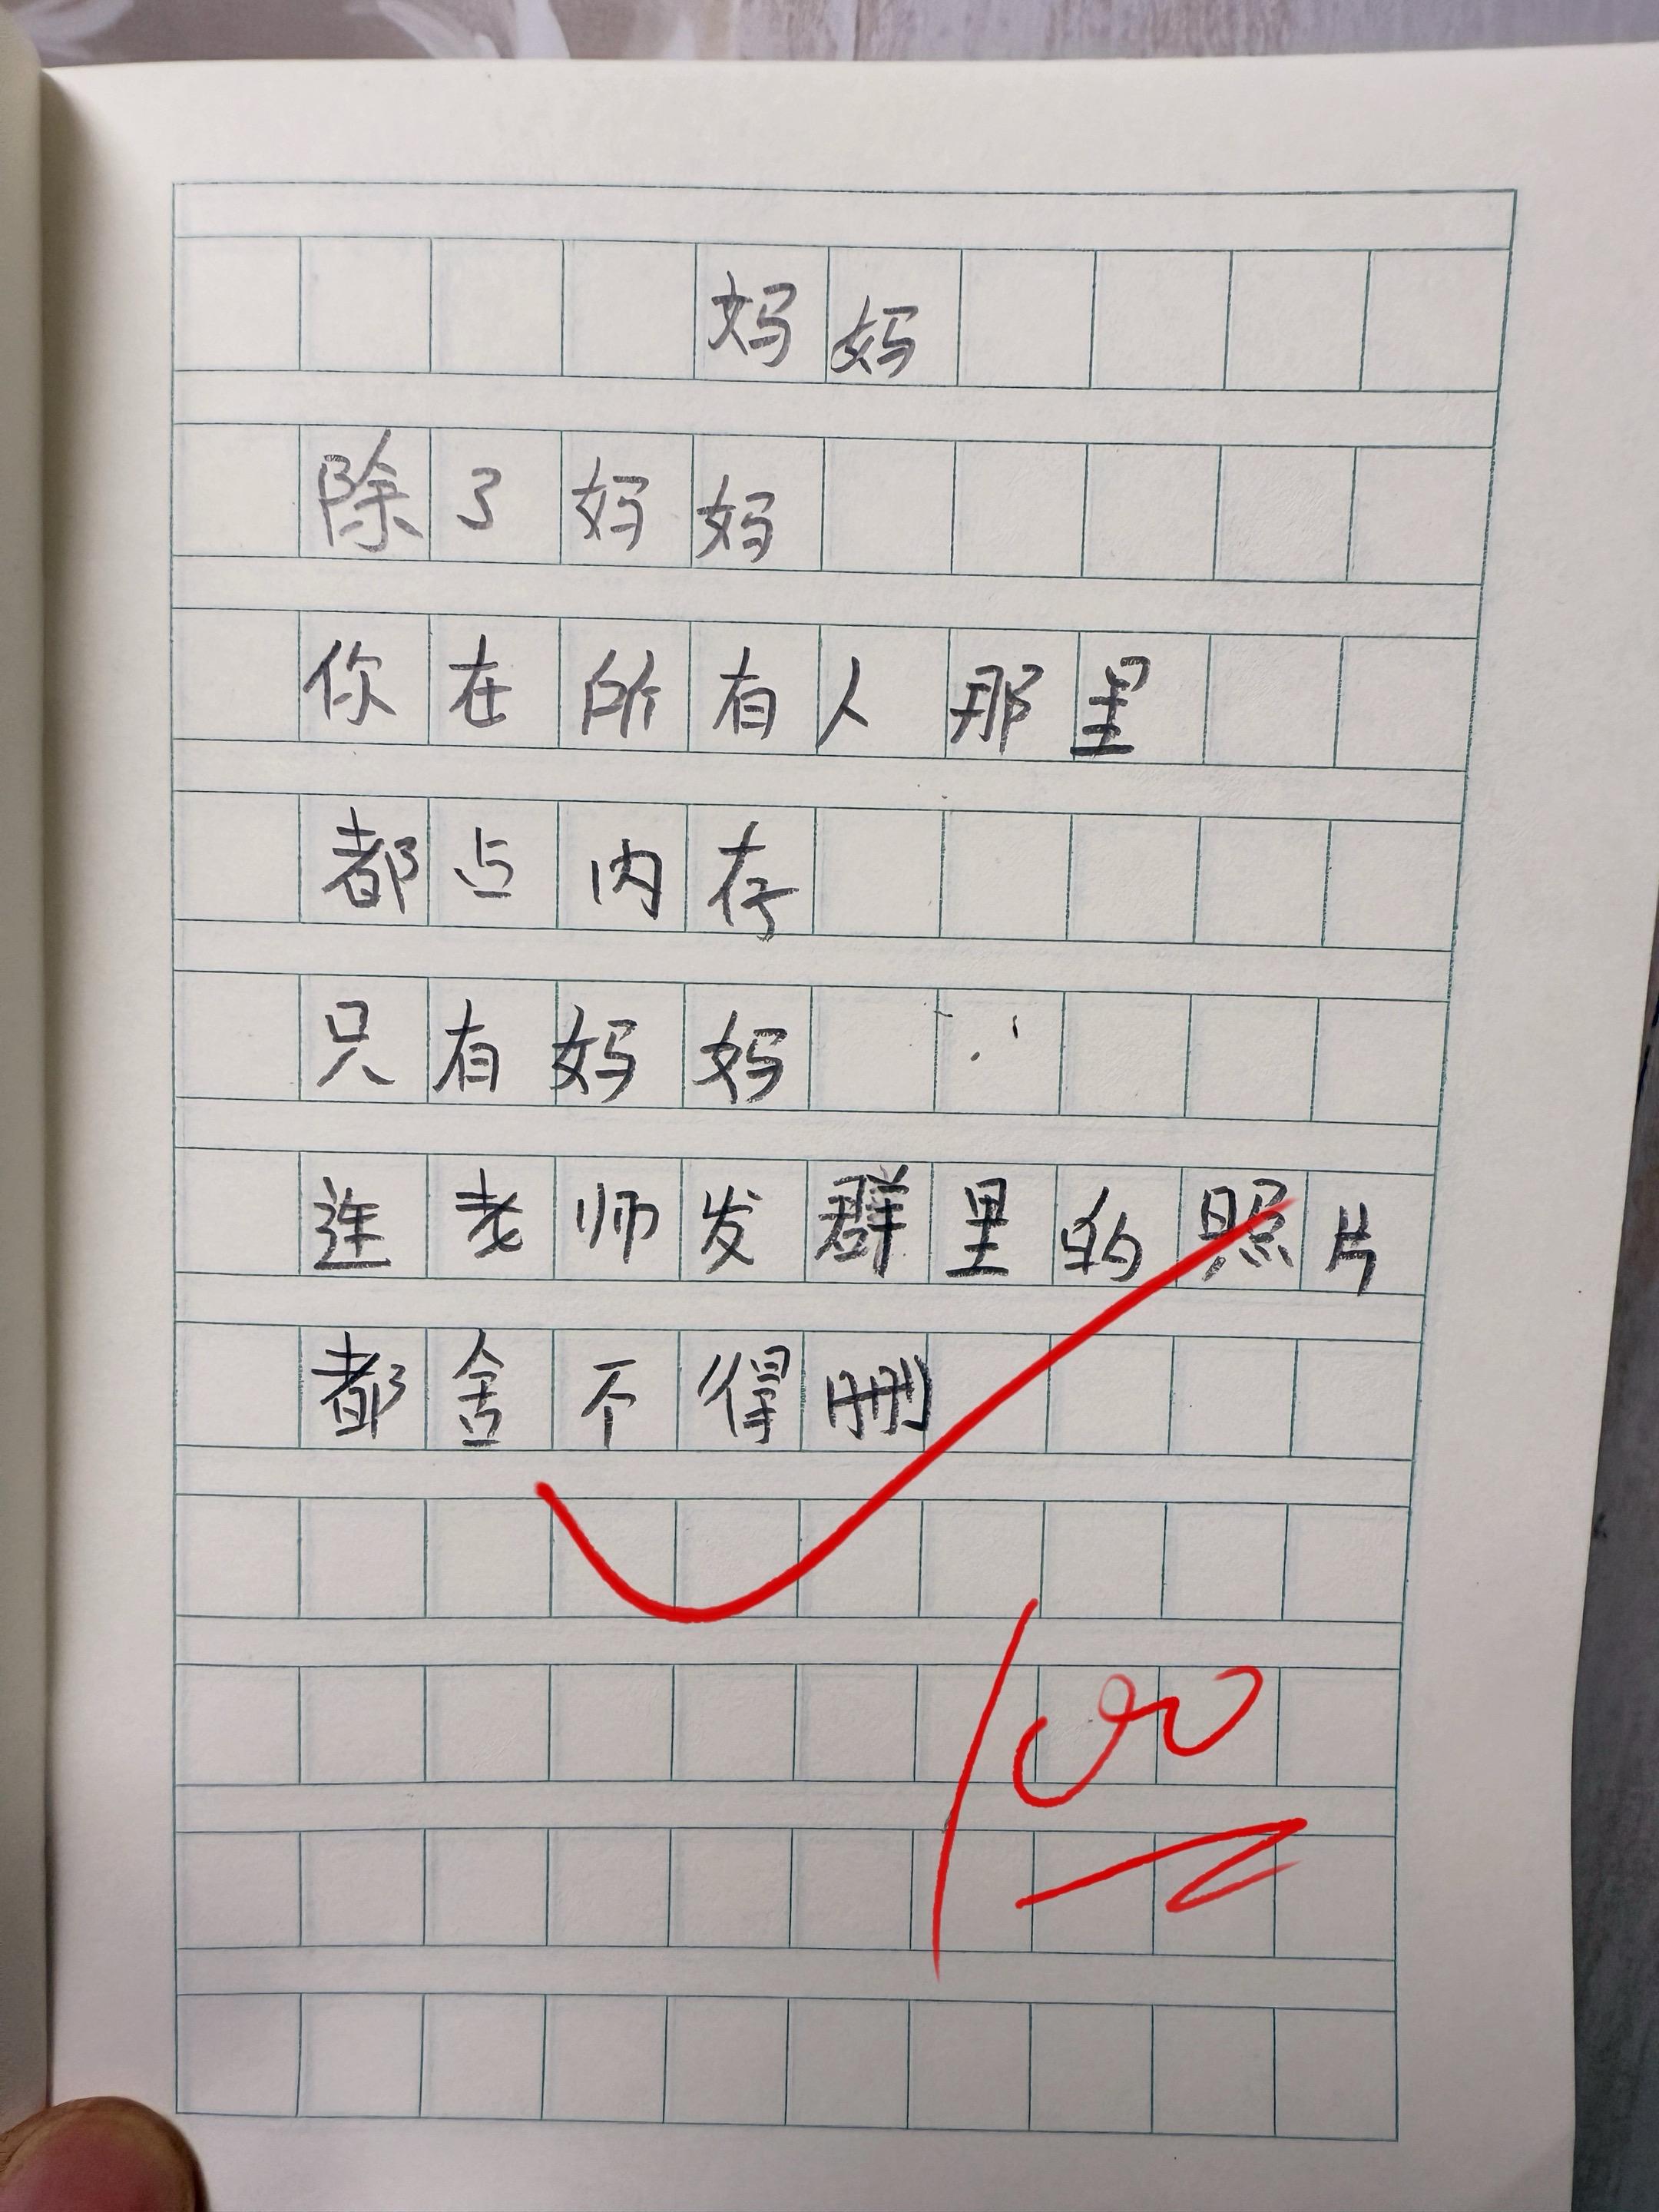 妈妈
除了妈妈
你在所有人那里
都占内存
只有妈妈
连老师发群里的照片
都舍不得删
100